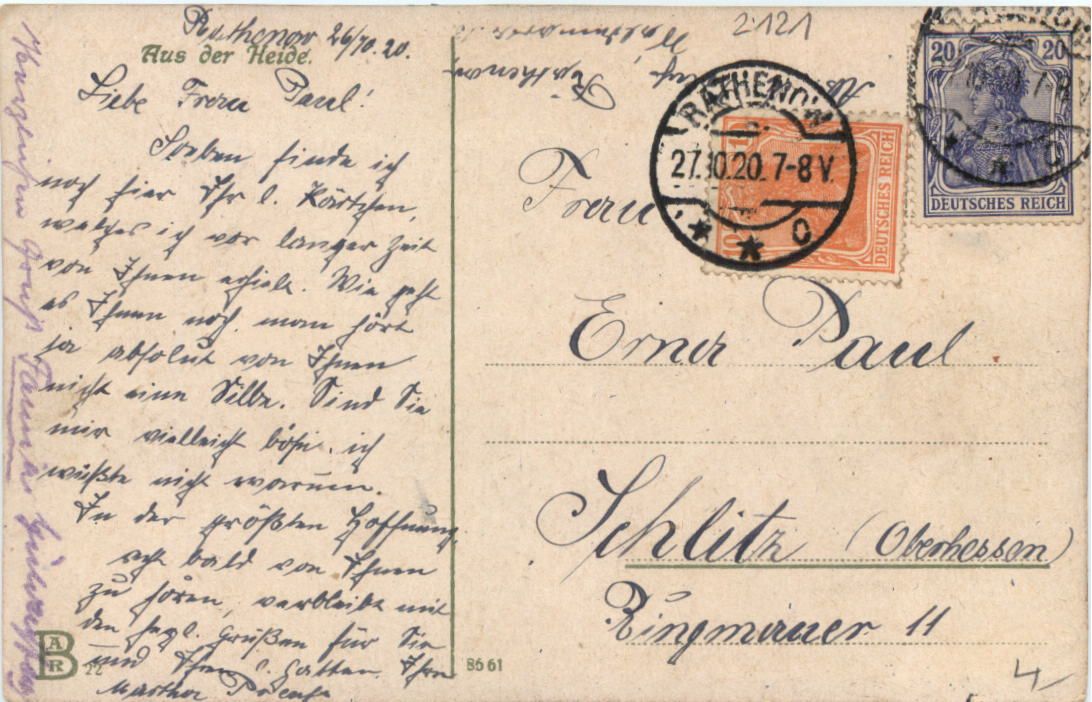 Rathenow 26/10.20.
Aus der Heide.
Liebe Frau Paul!
Soeben finde ich
noch hier Ihr l. Kärtchen,
welches ich vor langer Zeit
von Ihnen erhielt. Wie geht
es Ihnen noch, man hört
ja absolut von Ihnen
nicht eine Silbe. Sind Sie
mir vielleicht böse, ich
wüßte nicht warum.
In der größten Hoffnung,
recht bald von Ihnen
zu hören, verbleibt mit
den herzl. Grüßen für Sie
und Ihren l. Gatten Ihre
Martha
Herzlichen Gruß
BAR
22
8661
2121
Abs.
Rathenow
RATHENOW
27.10.20. 7-8 V.
* * c
10
DEUTSCHES REICH
20 20
DEUTSCHES REICH
Frau
Erna Paul
Schlitz (Oberhessen)
Ringmauer 11
4